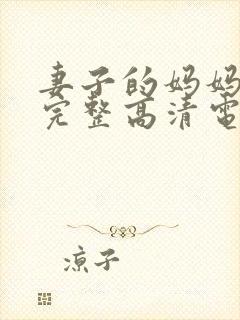 妻子的妈妈
完整高清电
凉子